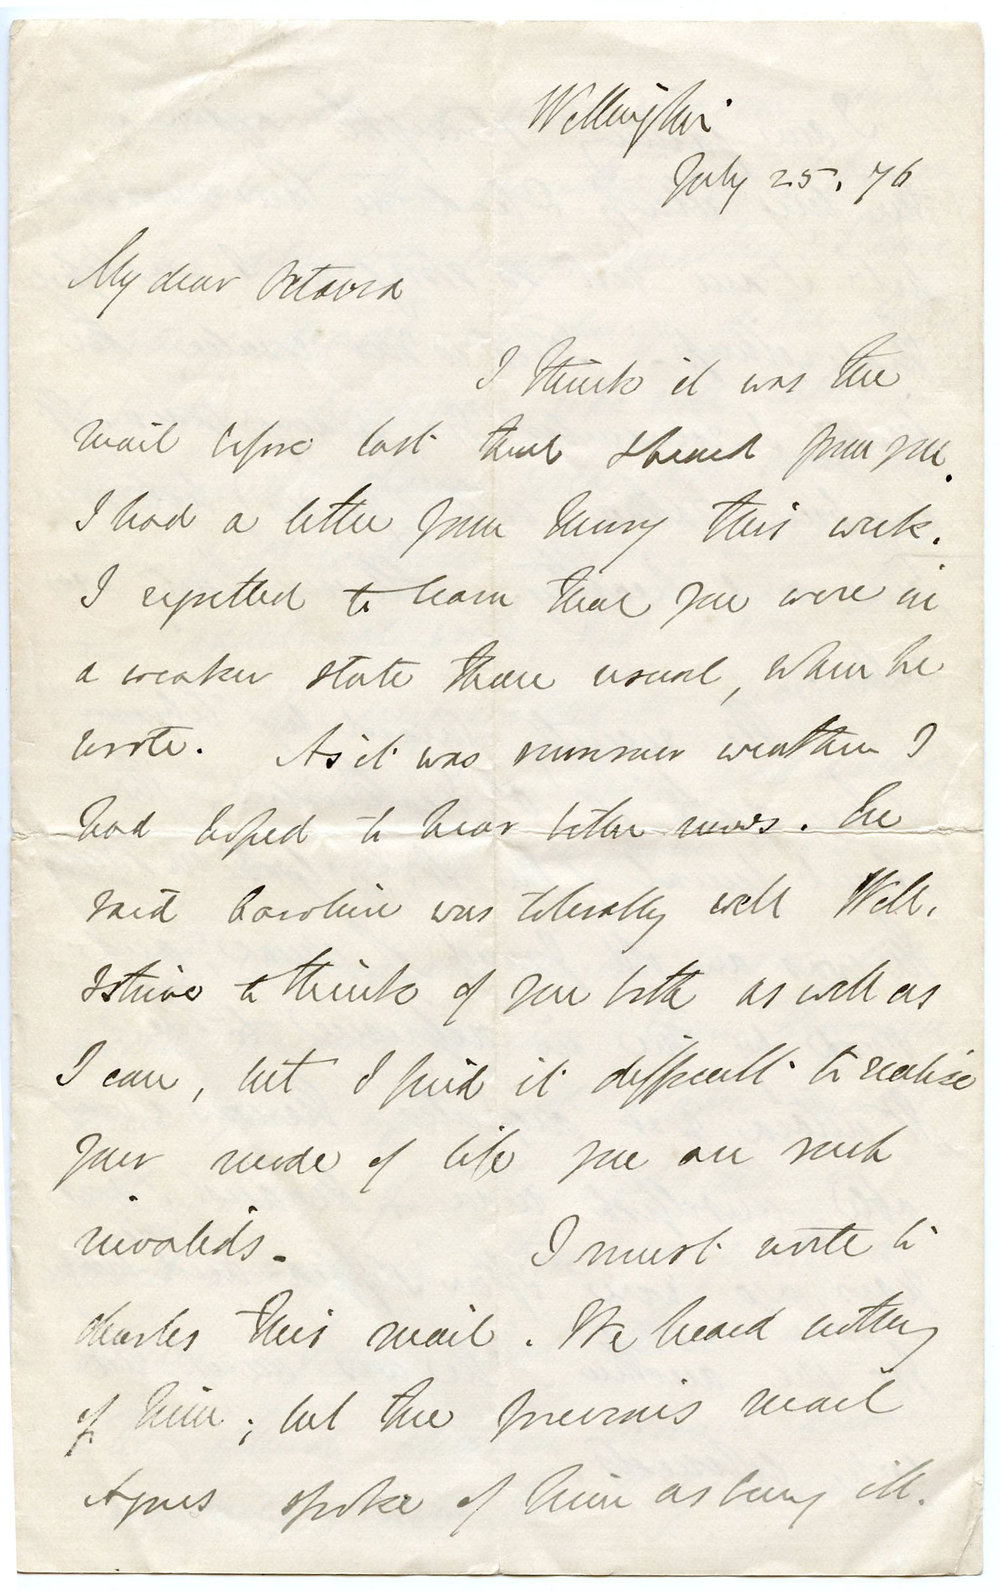 Wellington
July 25. 76
My dear Octavia
I think it was the
mail before last that I heard from you.
I had a letter from Henry this week.
I regretted to learn that you were in
a weaker state than usual, when he
wrote. As it was summer weather I
had hoped to hear better news. He
said Caroline was tolerably well Well.
I strive to think of you both as well as
I can, but I find it difficult to realise
your mode of life you are such
invalids.
I must write to
Charles this mail. We heard nothing
of him; but the previous mail
Agnes spoke of him as being ill.